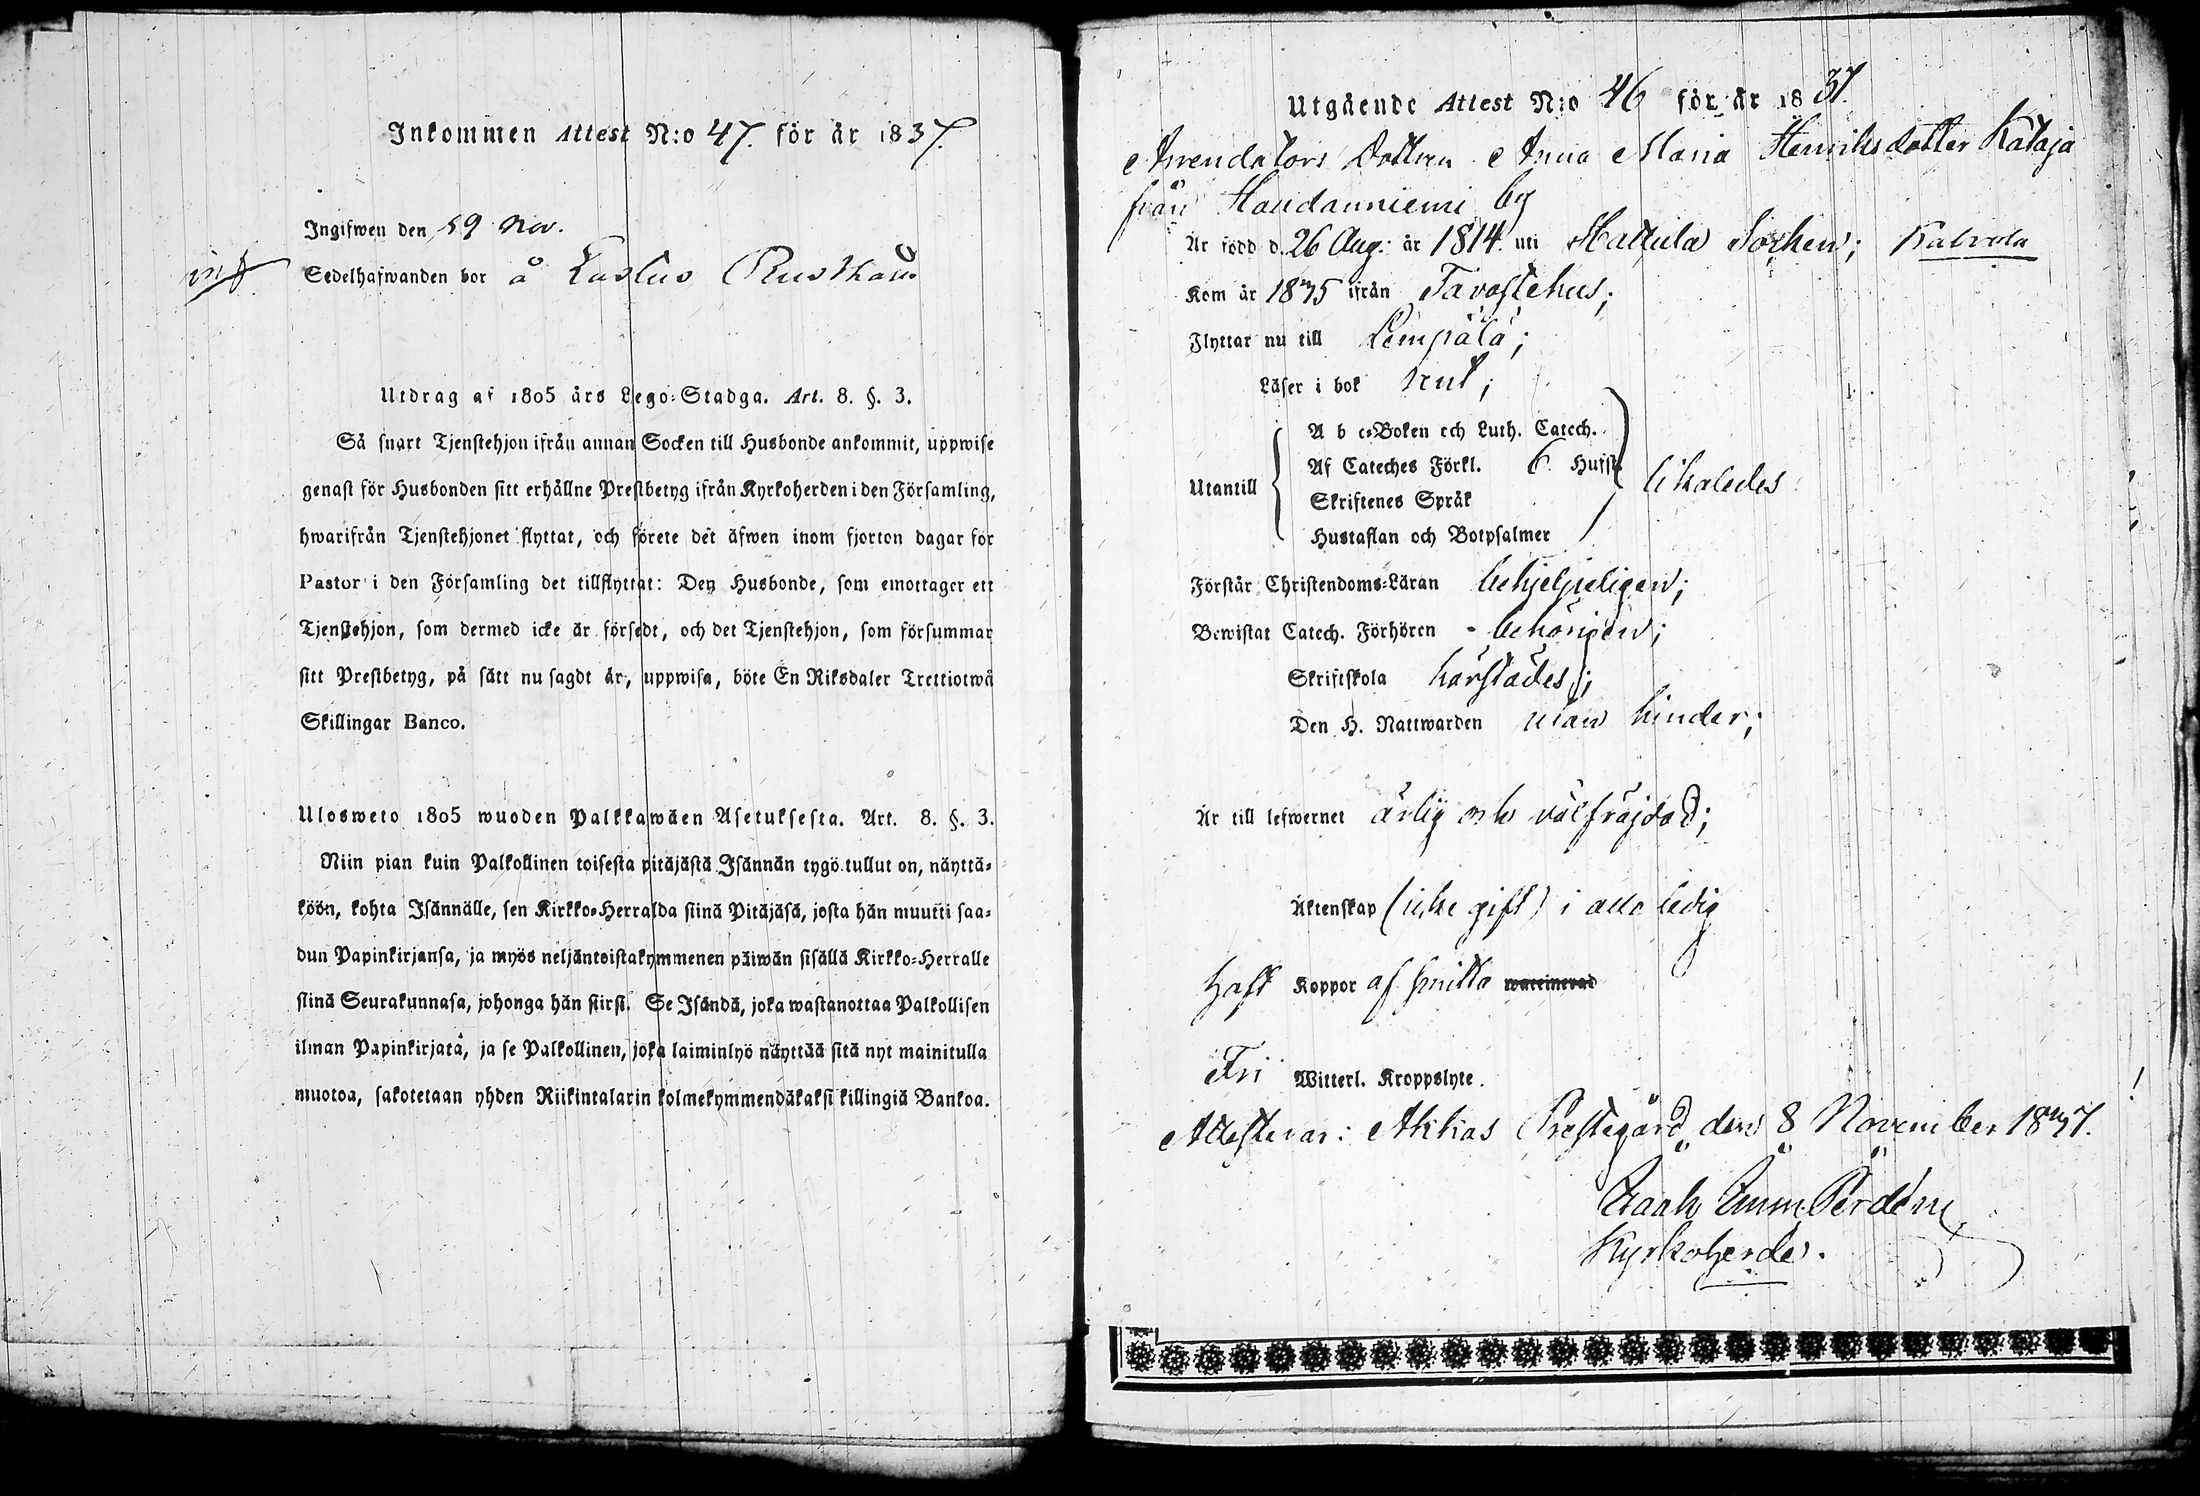 Inkommen Attest N:o 47. för år 1837.
Ingifwen den 19 Nov.
Sedelhafwanden bor å Rusthåll
Utdrag af 1805 års Lego-Stadga. Art. 8. §. 3.
Så snart Tjenstehjon ifrån annan Socken till Husbonde ankommit, uppwise
genast för Husbonden sitt erhållne Prestbetyg ifrån Kyrkoherden i den Församling,
hwarifrån Tjenstehjonet flyttat, och förete det äfwen inom fjorton dagar för
Pastor i den Församling det tillflyttat: Den Husbonde, som emottager ett
Tjenstehjon, som dermed icke är försedt, och det Tjenstehjon, som försummar
sitt Prestbetyg, på sätt nu sagdt är, uppwisa, böte En Riksdaler Trettiotwå
Skillingar Banco.
Ulosweto 1805 wuoden Palkkawäen Asetuksesta. Art. 8. §. 3.
Niin pian kuin Palkollinen toisesta pitäjästä Isännän tygö tullut on, näyttä-
köön, kohta Isännälle, sen Kirkko-Herralda siinä Pitäjäsä, josta hän muutti saa-
dun Papinkirjansa, ja myös neljäntoistakymmenen päiwän sisällä Kirkko-Herralle
siinä Seurakunnasa, johonga hän siirsi. Se Isändä, joka wastanottaa Palkollisen
ilman Papinkirjatä, ja se Palkollinen, joka laiminlyö näyttää sitä nyt mainitulla
muotoa, sakotetaan yhden Riikintalarin kolmekymmendäkaksi killingiä Bankoa.
Utgående Attest N:o 46 för år 1837.
Arrendators Dottren Anna Maria Henriksdotter Kataja
från Haudanniemi by
Är född d. 26 Aug: år 1814. uti Hattula Sochen; Kalvola
Kom år 1835 ifrån Tavastehus;
Flyttar nu till Lempälä;
Läser i bok rent;
Utantill
A b c-Boken och Luth. Catech.
Af Cateches Förkl. 6 Hufst.
Skriftenes Språk
Hustaflan och Botpsalmer
likaledes
Förstår Christendoms-Läran behjelpeligen;
Bewistat Catech. Förhören behörigen;
Skriftskola härstädes;
Den H. Nattwarden utan hinder;
Är till lefwernet ärlig och välfräjdad;
Äktenskap (icke gift) i allo ledig
Haft Koppor af smitta waccinerad
Fri Witterl. Kroppslyte.
Attesterar: Akkas Prestegård den 8 November 1837.
Isaak Emm.
Kyrkoherde.